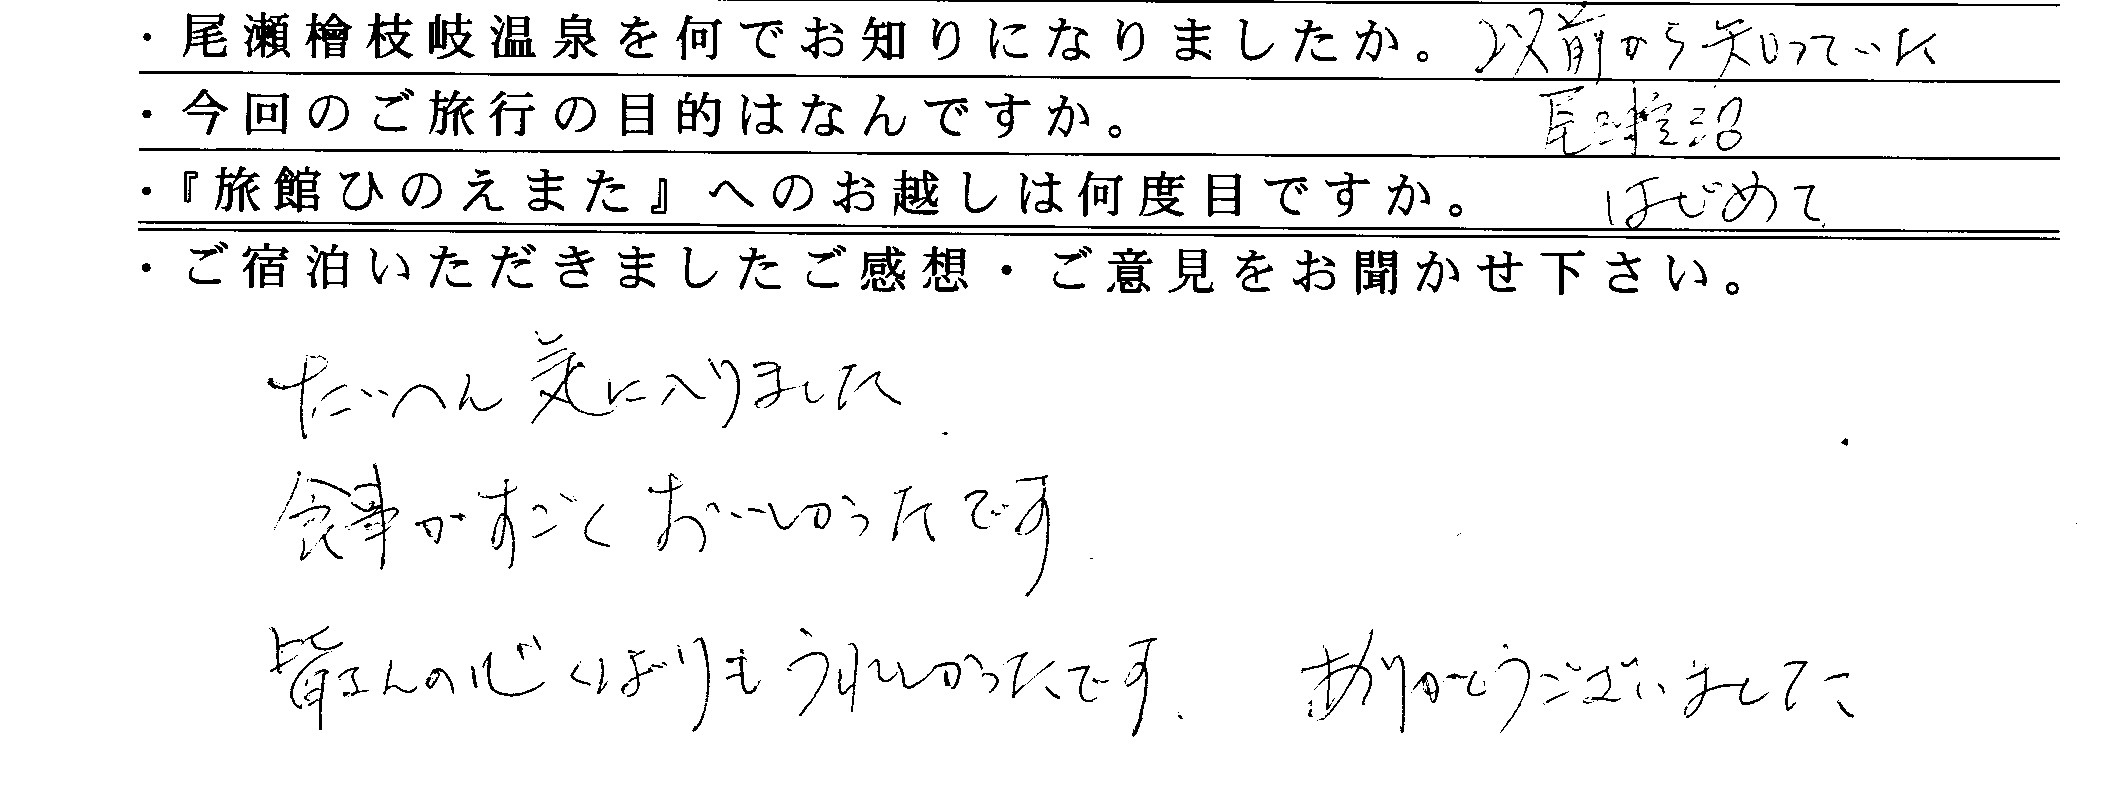 ・尾瀬檜枝岐温泉を何でお知りになりましたか。以前から知っていた
・今回のご旅行の目的はなんですか。尾瀬沼
・『旅館ひのえまた』へのお越しは何度目ですか。はじめて
・ご宿泊いただきましたご感想・ご意見をお聞かせ下さい。
たいへん気に入りました.
食事がすごくおいしかったです.
皆さんの心くばりもうれしかったです. ありがとうございました